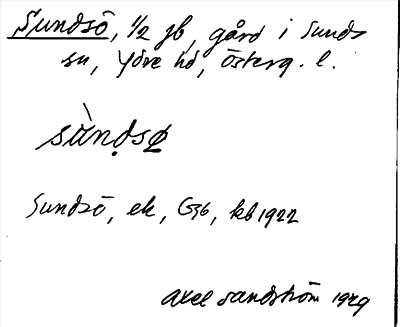 Sundsö, 1/2 jb, gård i Sunds
sn, Ydre hd, Österg. l.
sùndsø
Sundsö, ek, G36, kb 1922
Axel Sandström 1929